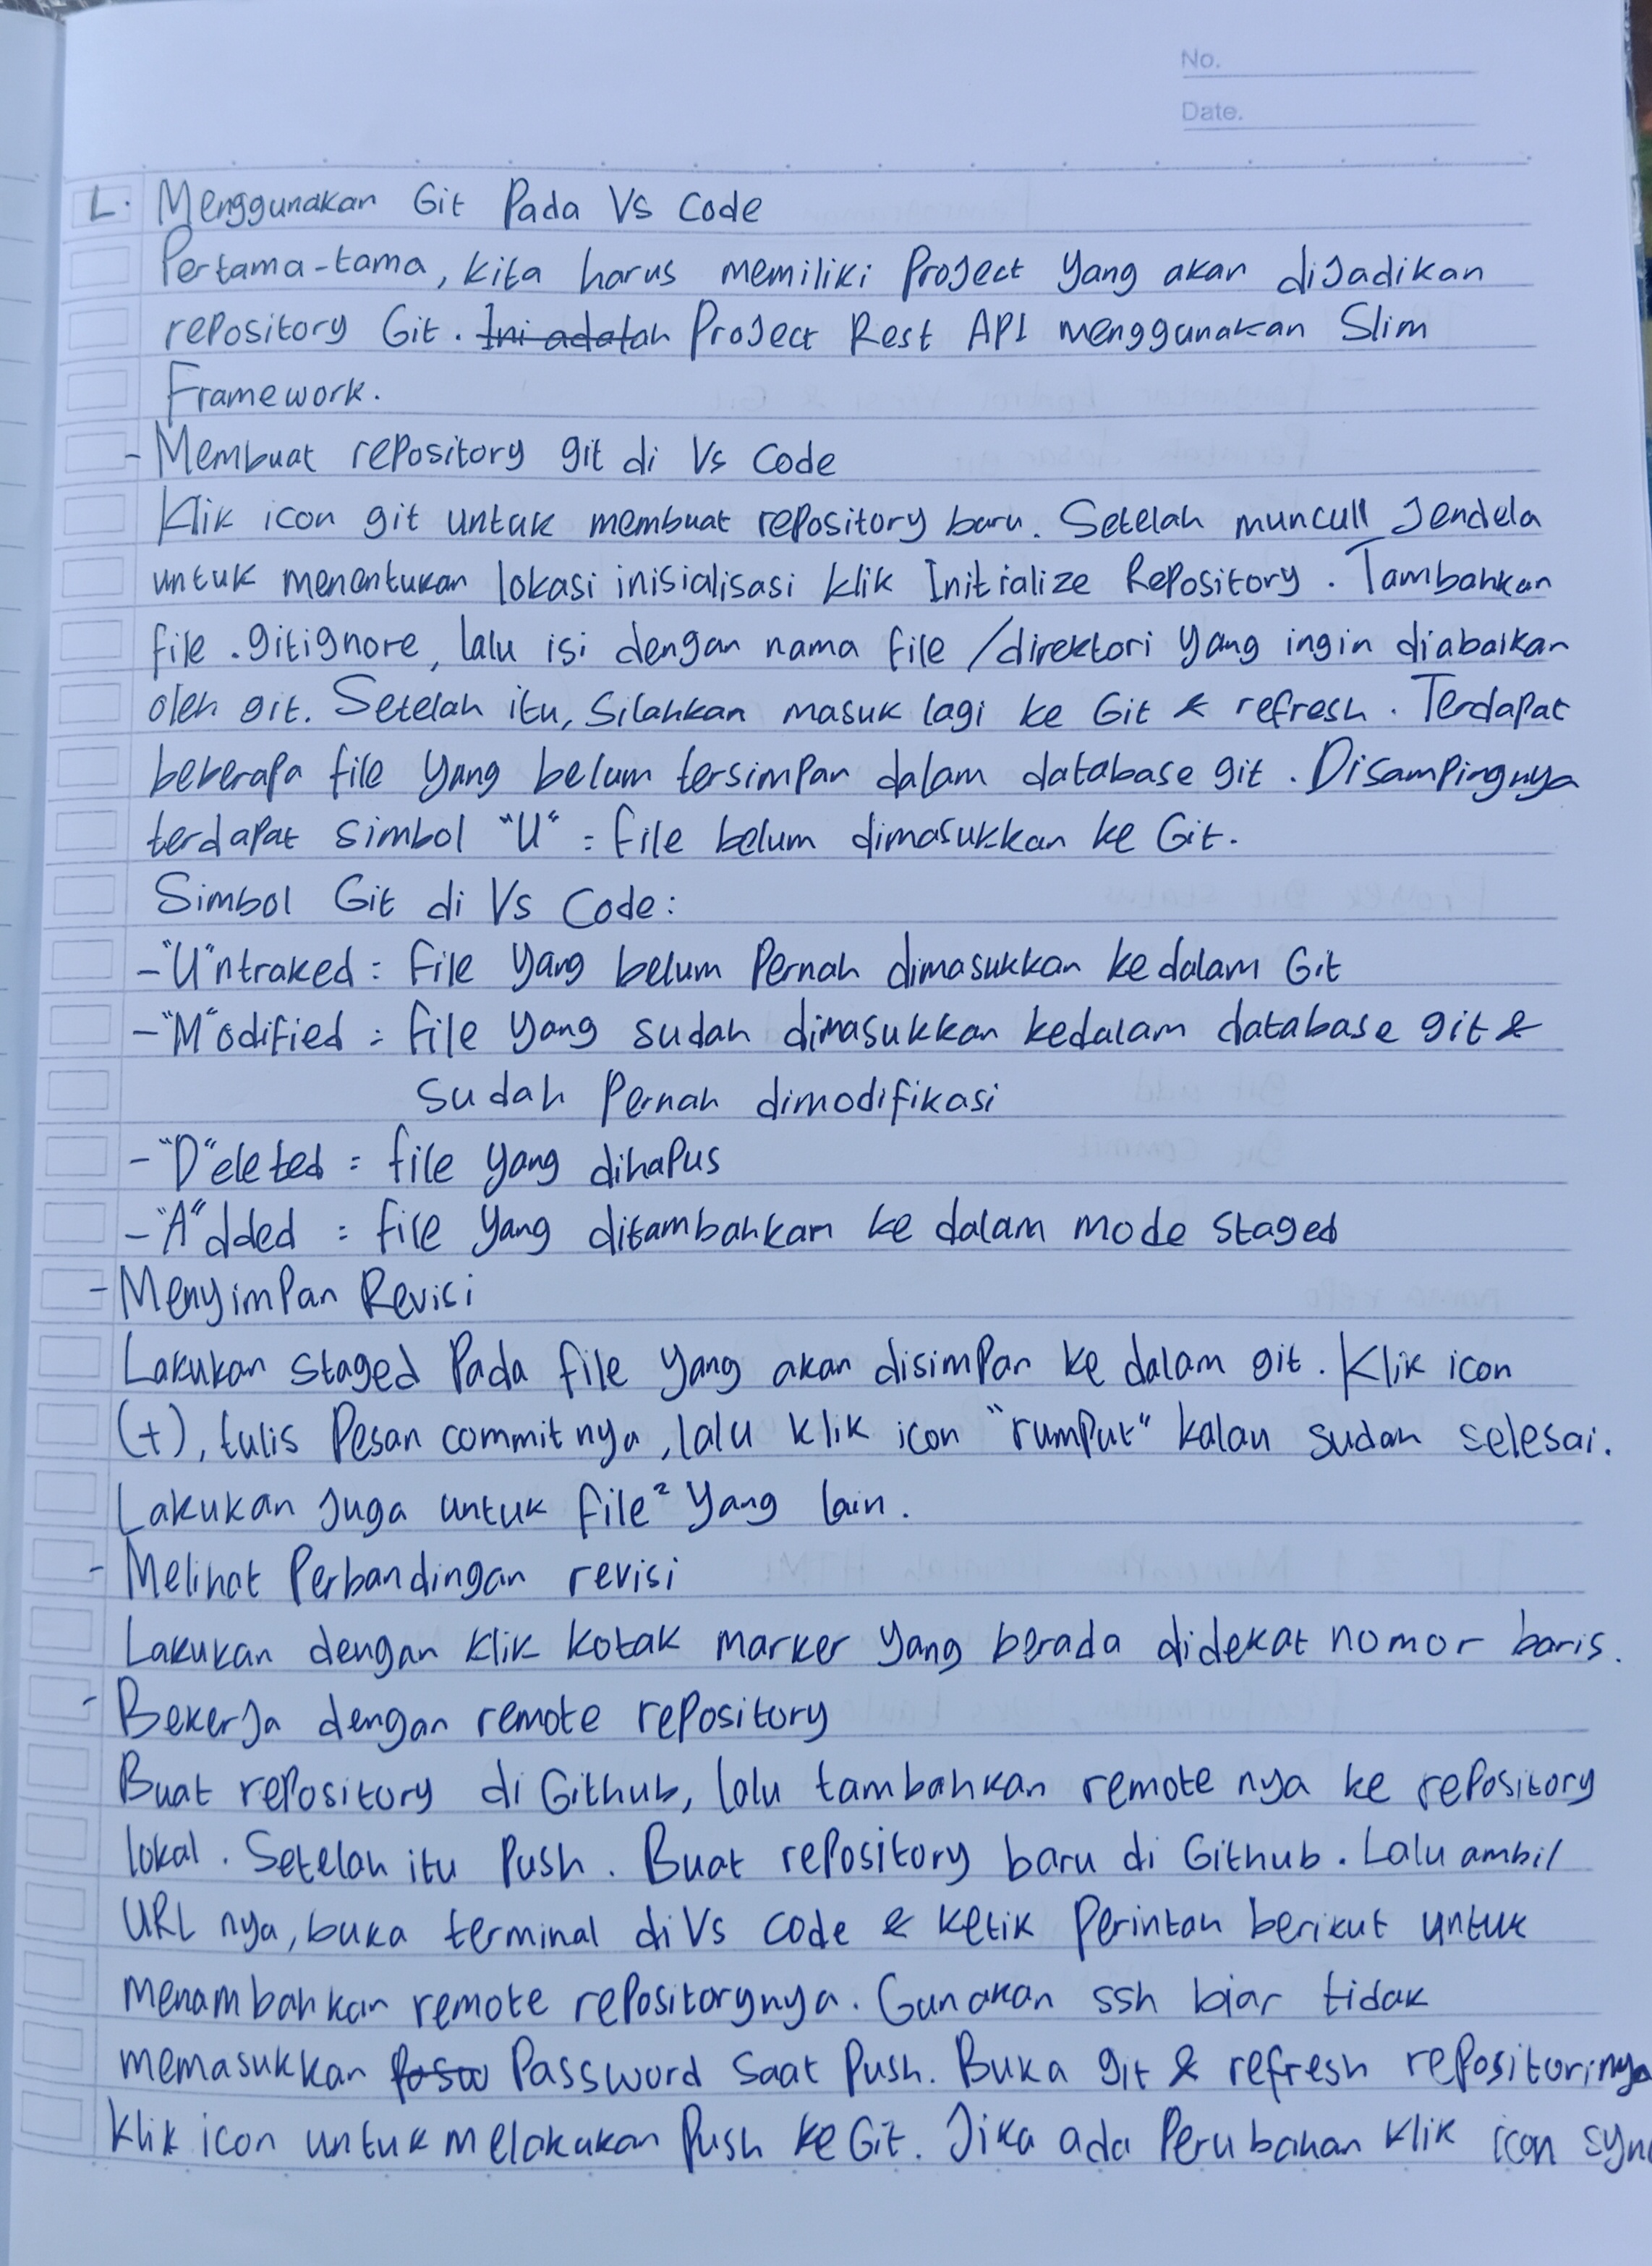 No.
Date.
L. Menggunakan Git Pada Vs Code
Pertama-tama, kita harus memiliki Project yang akan diJadikan
repository Git. Ini adalah Project Rest API menggunakan Slim
Framework.
- Membuat repository git di Vs Code
Klik icon git untuk membuat repository baru. Setelah muncull Jendela
untuk menentukan lokasi inisialisasi klik Initialize Repository. Tambahkan
file .gitignore, lalu isi dengan nama file /direktori yang ingin diabaikan
oleh git. Setelah itu, Silahkan masuk lagi ke Git & refresh. Terdapat
beberapa file yang belum tersimpan dalam database git. Disampingnya
terdapat simbol "U" = file belum dimasukkan ke Git.
Simbol Git di Vs Code:
- "U"ntraked = File yang belum Pernah dimasukkan kedalam Git
- "M"odified = file yang sudah dimasukkan kedalam database git &
sudah Pernah dimodifikasi
- "D"eleted = file yang dihapus
- "A"dded = file yang ditambahkan ke dalam mode staged
- Menyimpan Revisi
Lakukan staged Pada file yang akan disimpan ke dalam git. Klik icon
(+), tulis Pesan commit nya, lalu klik icon "rumput" kalau sudah selesai.
Lakukan Juga untuk file² yang lain.
- Melihat Perbandingan revisi
Lakukan dengan klik kotak marker yang berada didekat nomor baris.
- BekerJa dengan remote repository
Buat repository di Github, lalu tambahkan remote nya ke repository
lokal. Setelah itu Push. Buat repository baru di Github. Lalu ambil
URL nya, buka terminal di Vs Code & ketik Perintah berikut untuk
menambahkan remote repositorynya. Gunakan ssh biar tidak
memasukkan Password saat Push. Buka git & refresh repositorinya
Klik icon untuk melakukan Push ke Git. Jika ada Perubahan klik icon sync